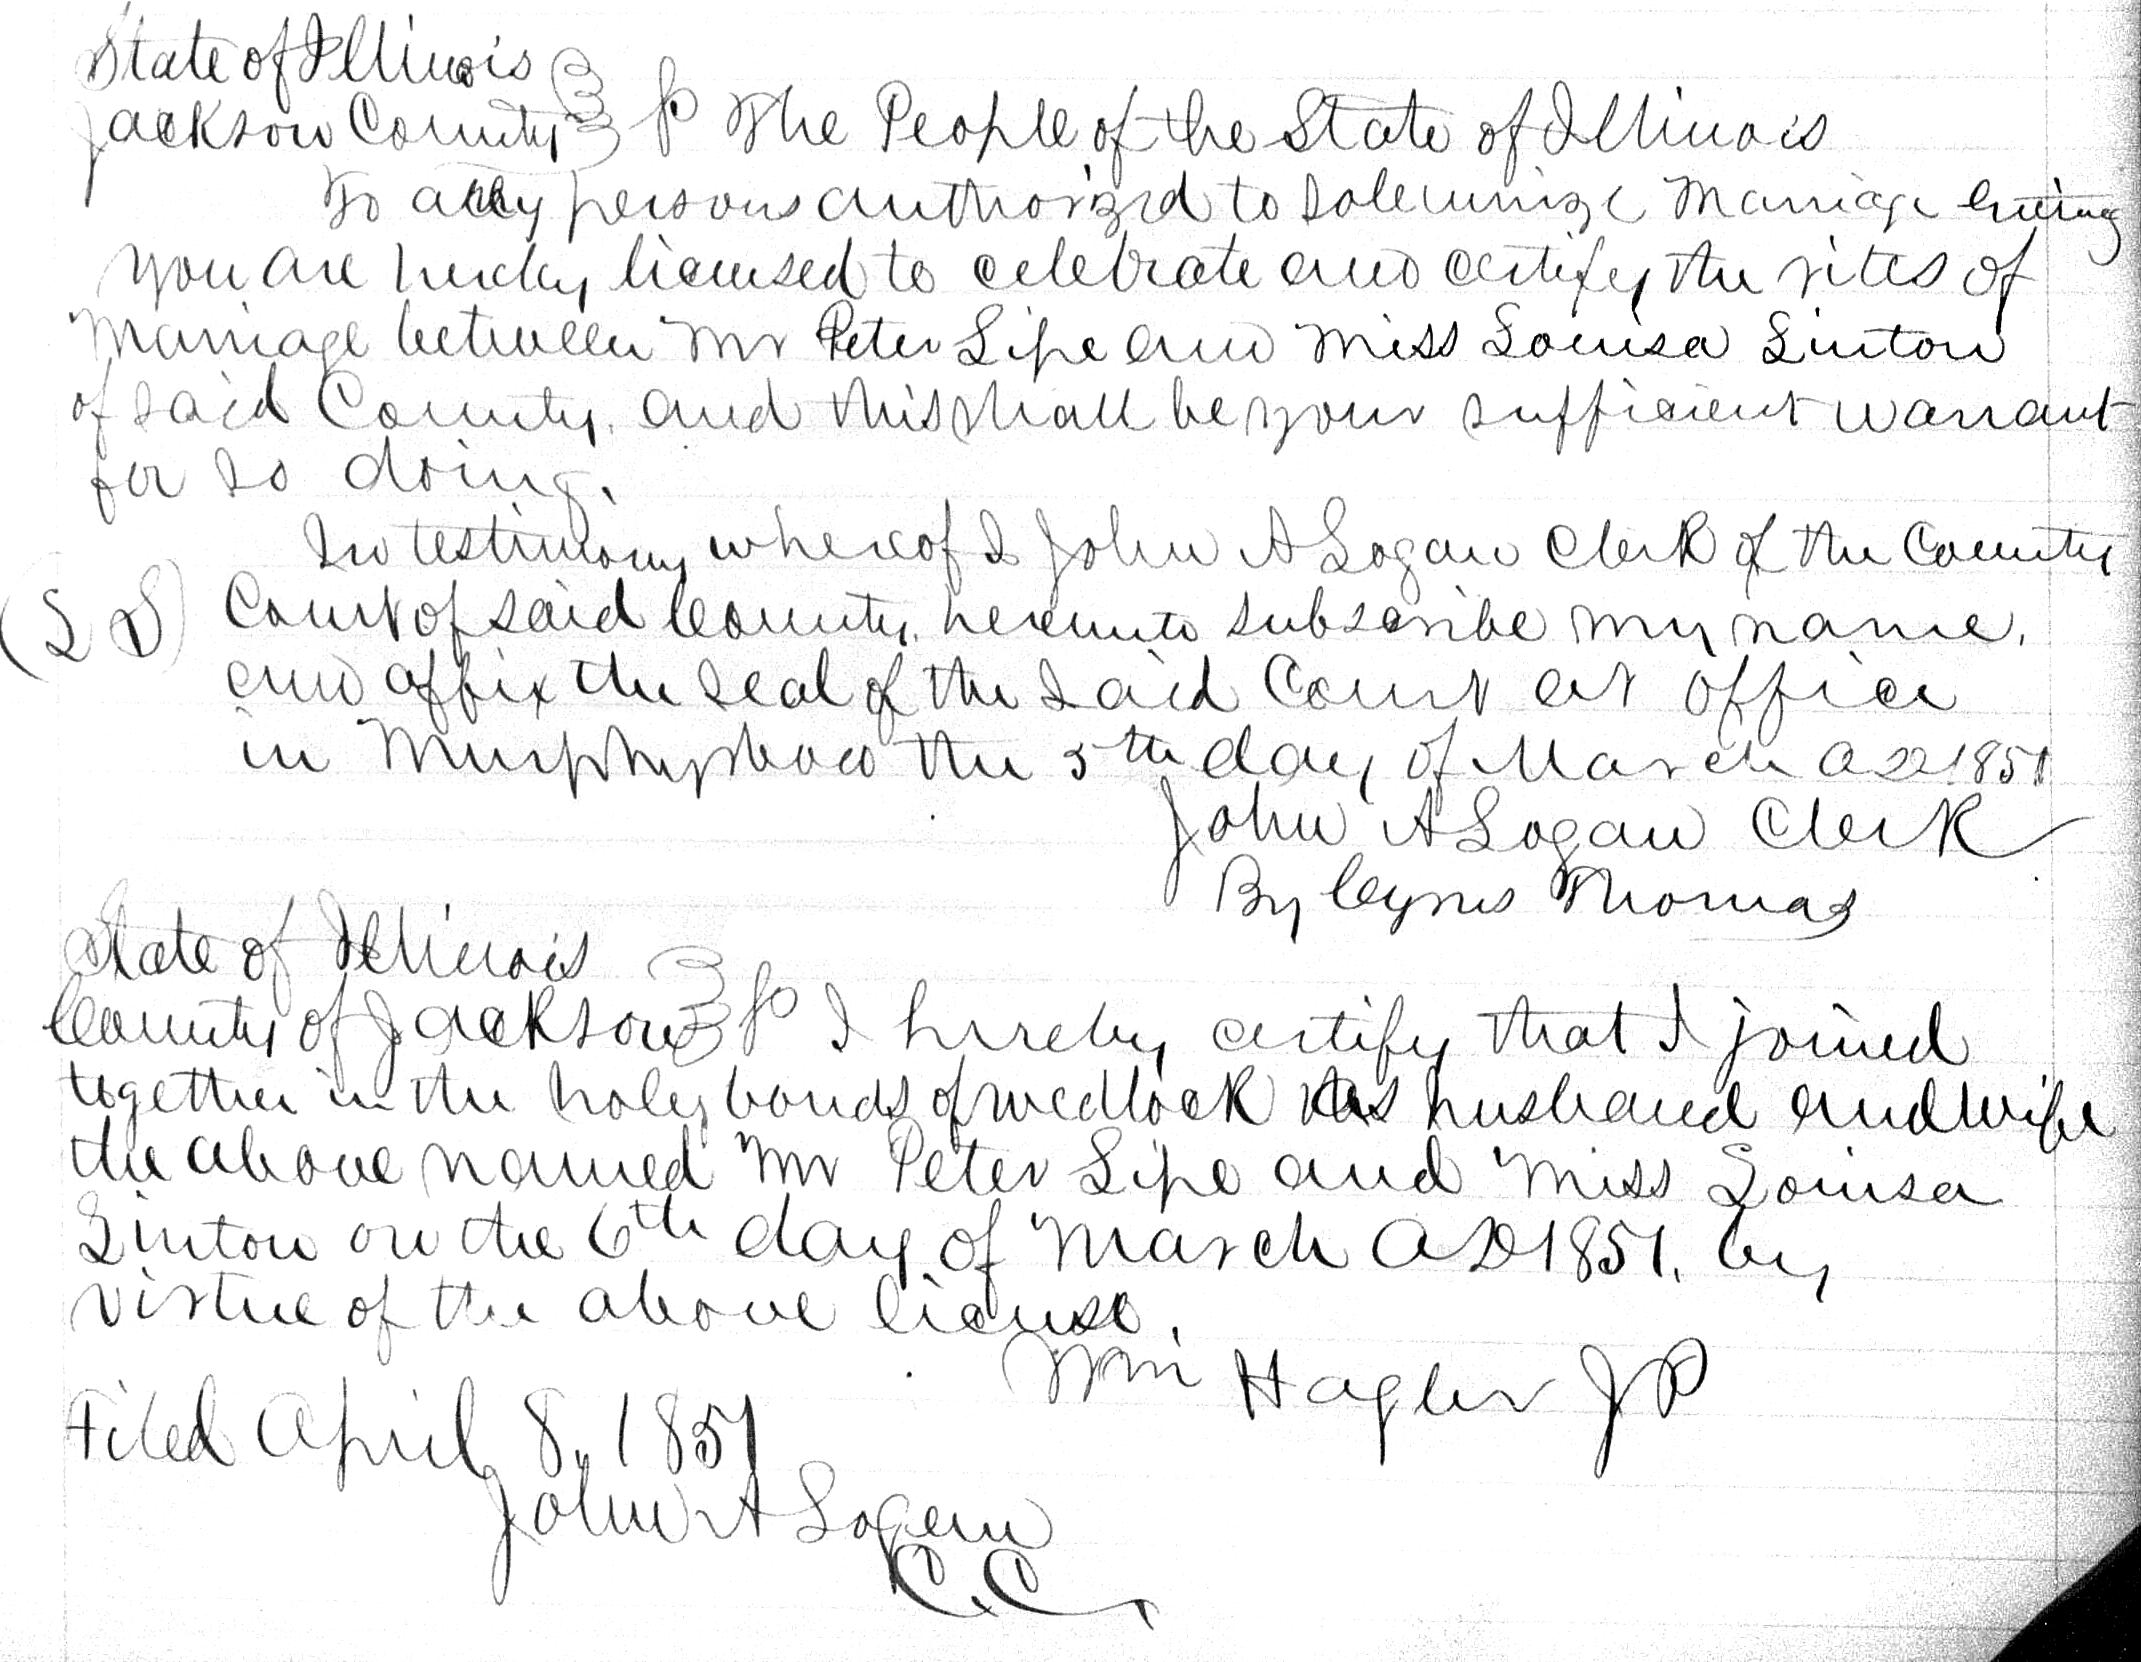 State of Illinois
Jackson County The People of the State of Illinois
To any persons authorized to solemnize Marriage
you are hereby licensed to celebrate and certify the rites of
Marriage between Mr Peter Lipe and Miss Louisa Linton
of said County, and this shall be your sufficient warrant
for so doing.
In testimony whereof I John A Logan Clerk of the County
(L S) Court of said County, hereunto subscribe my name,
and affix the seal of the said Court at office
in Murphysboro the 5th day of March AD 1851
John A Logan Clerk
By Cyrus Thomas
State of Illinois
County of Jackson I hereby certify that I joined
together in the holy bonds of wedlock as husband and wife
the above named Mr Peter Lipe and Miss Louisa
Linton on the 6th day of March AD 1851, by
virtue of the above license.
Wm Hagler JP
Filed April 8, 1851
John A Logan
C.C.